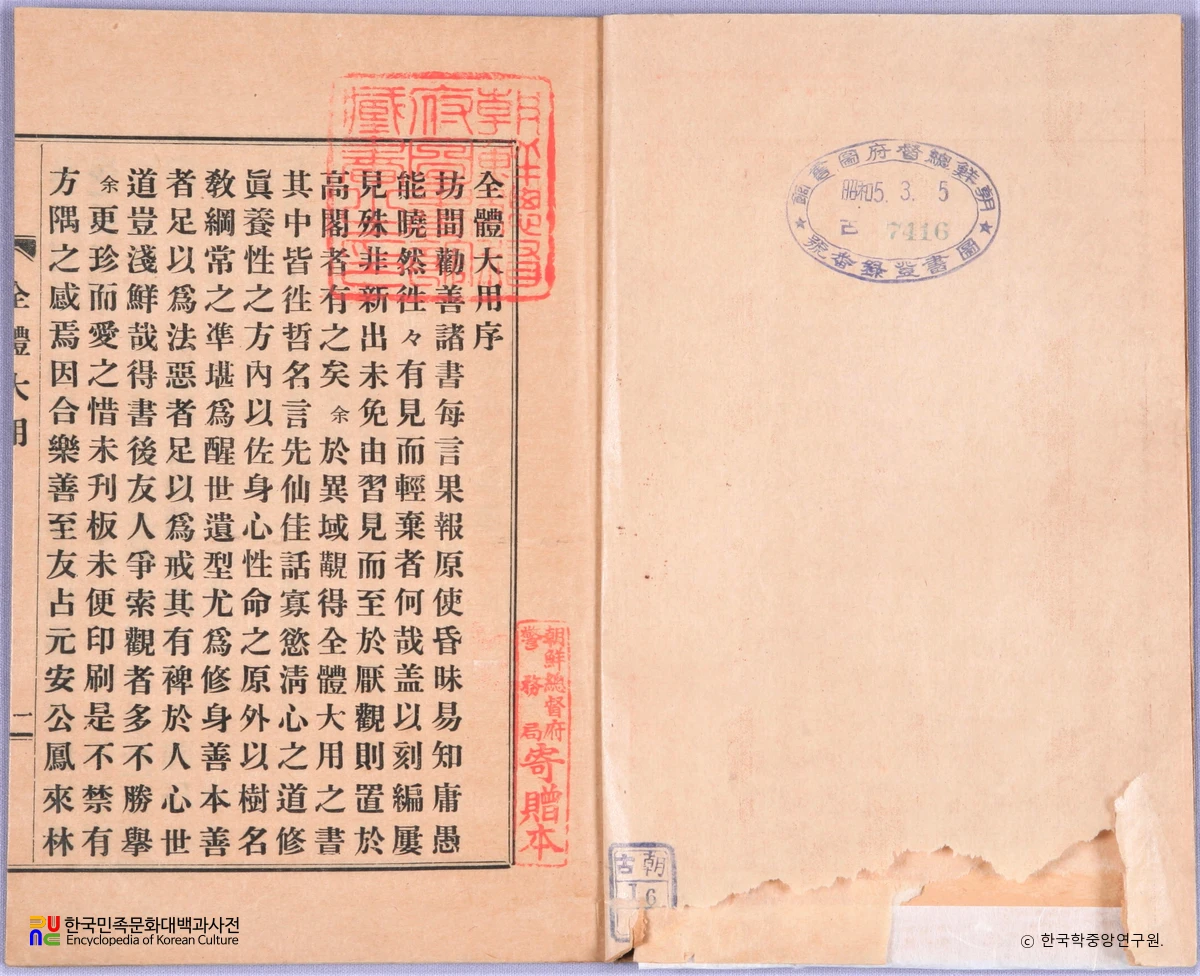 朝鮮總督府圖書館
昭和5. 3. 5
古 7416
圖書登錄番號
朝
古
16
朝鮮總督府圖書館藏書之印
朝鮮總督府
警務局
寄贈本
全體大用序
坊間勸善諸書每言果報原使昏昧易知庸愚
能曉然徃々有見而輕棄者何哉盖以刻編屢
見殊非新出未免由習見而至於厭觀則置於
高閣者有之矣余於異域觀得全體大用之書
其中皆徃哲名言先仙佳話寡慾淸心之道修
眞養性之方內以佐身心性命之原外以樹名
敎綱常之凖堪爲醒世遺型尤爲修身善本善
者足以爲法惡者足以爲戒其有裨於人心世
道豈淺鮮哉得書後友人爭索觀者多不勝擧
余更珍而愛之惜未刋板未便印刷是不禁有
方隅之感焉因合樂善至友占元安公鳳來林
全體大用
二
한국민족문화대백과사전
Encyclopedia of Korean Culture
© 한국학중앙연구원.